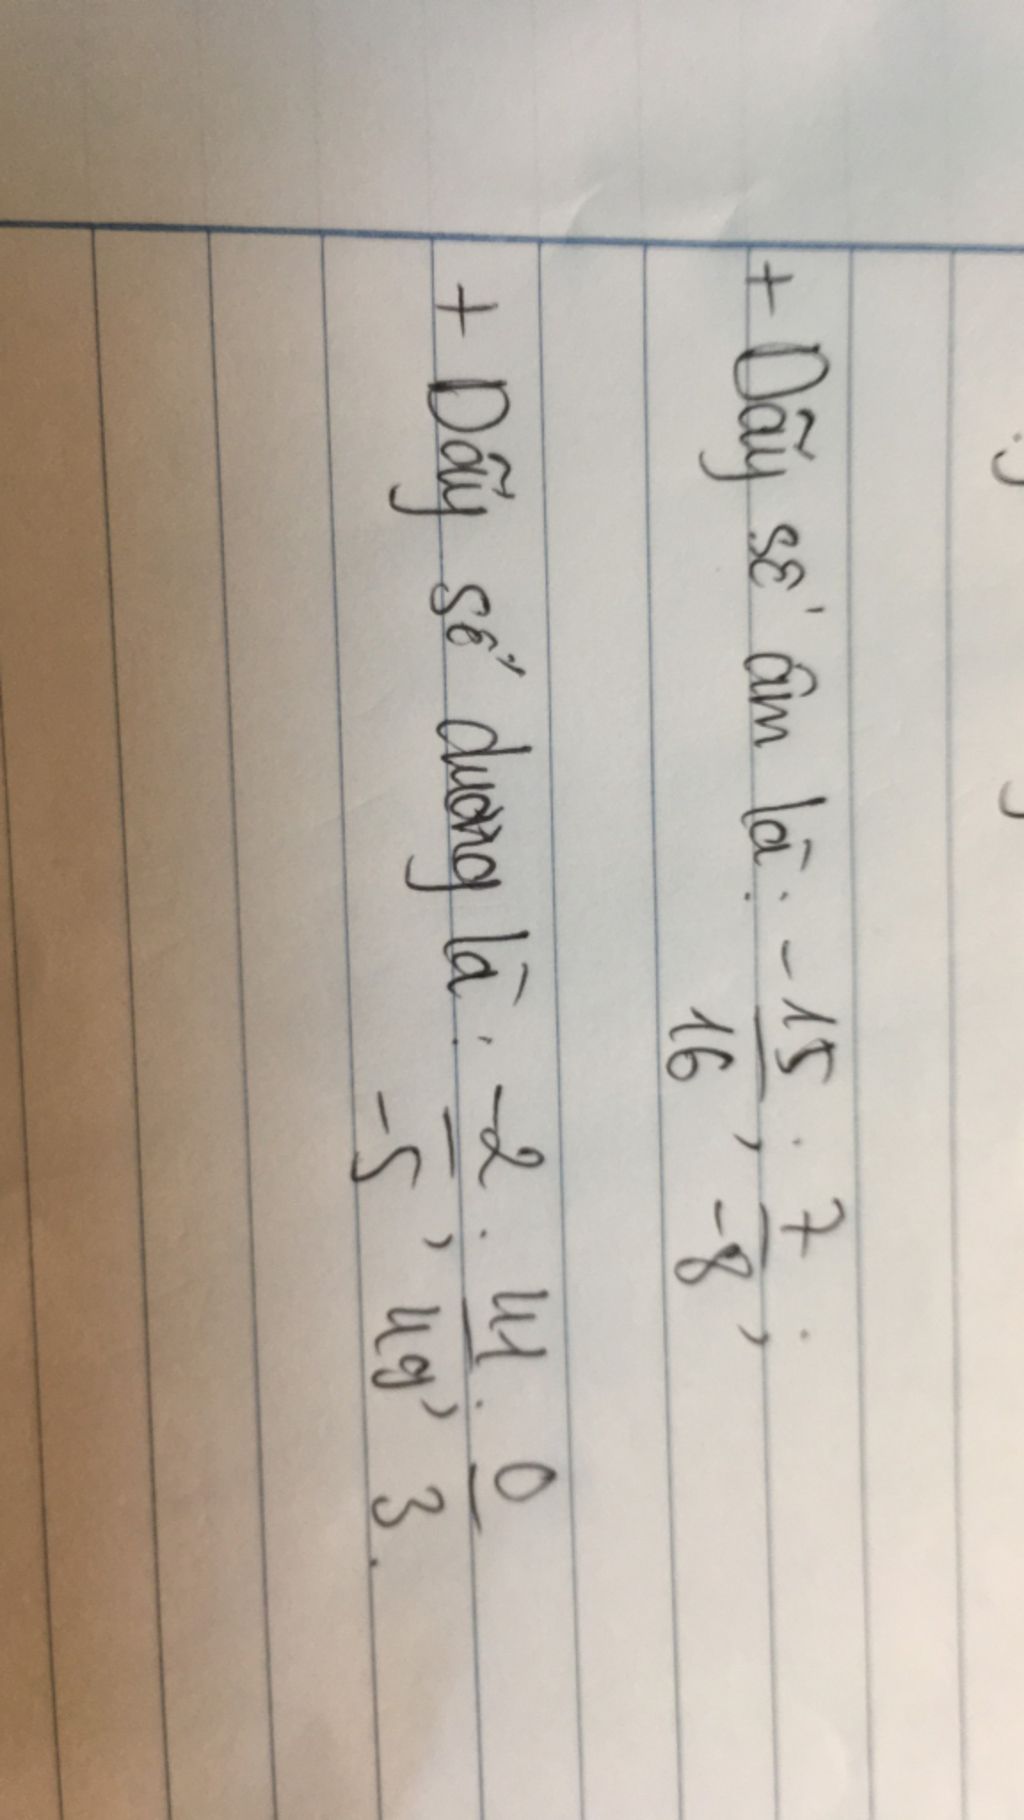 + Dãy số âm là: -15/16; 7/-8;
+ Dãy số dương là: -2/-5; 41/49; 0/3.